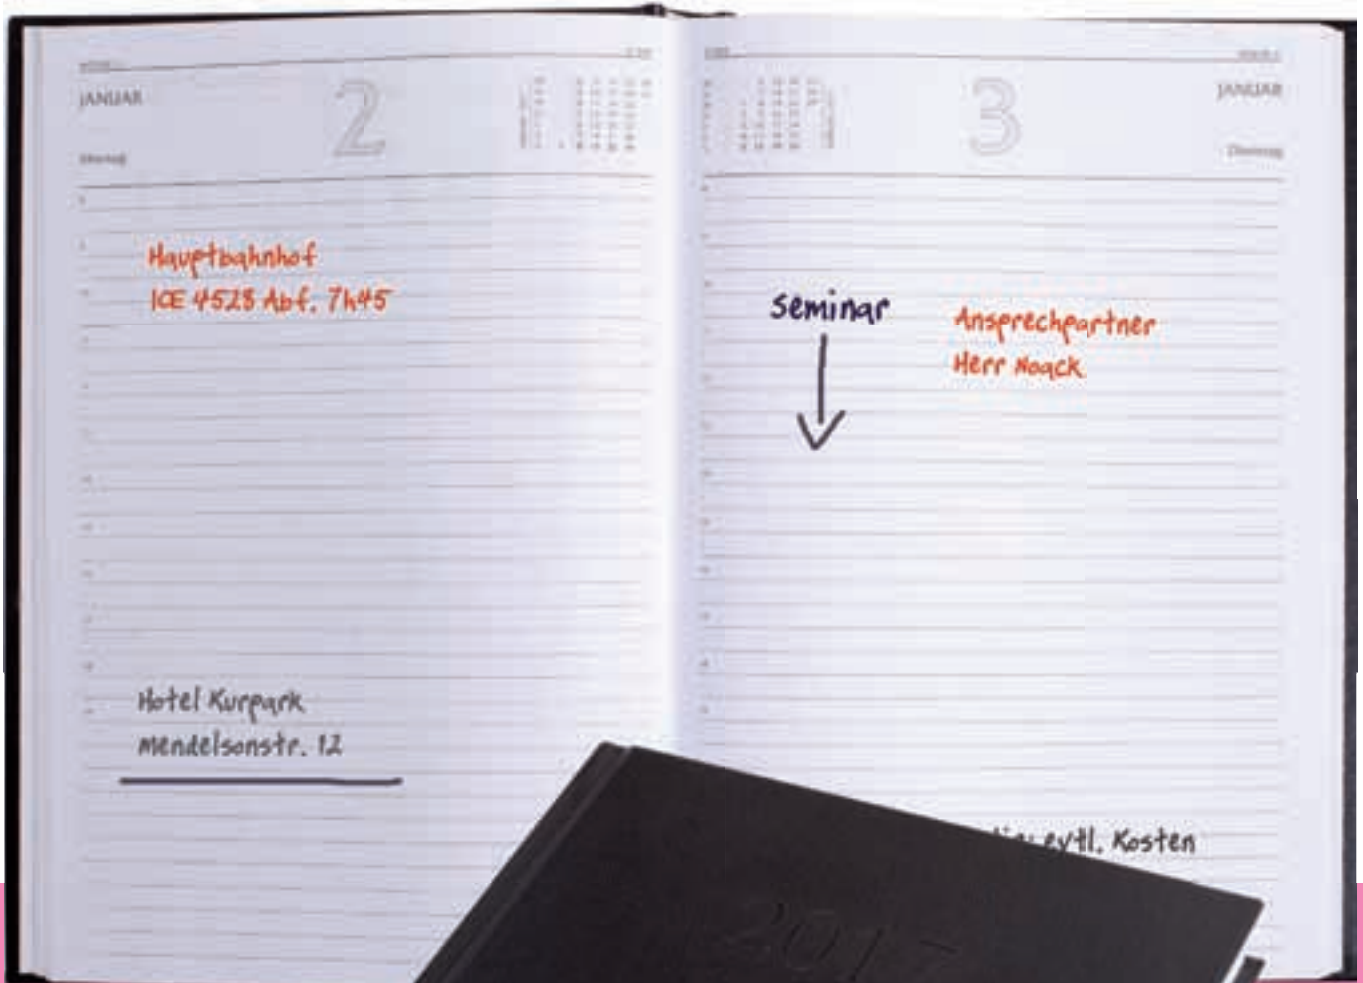 JANUAR
2
Montag
Hauptbahnhof
ICE 4528 Abf. 7h45
Hotel Kurpark
Mendelsonstr. 12
3
JANUAR
Dienstag
Seminar
Ansprechpartner
Herr Noack
evtl. Kosten
2017